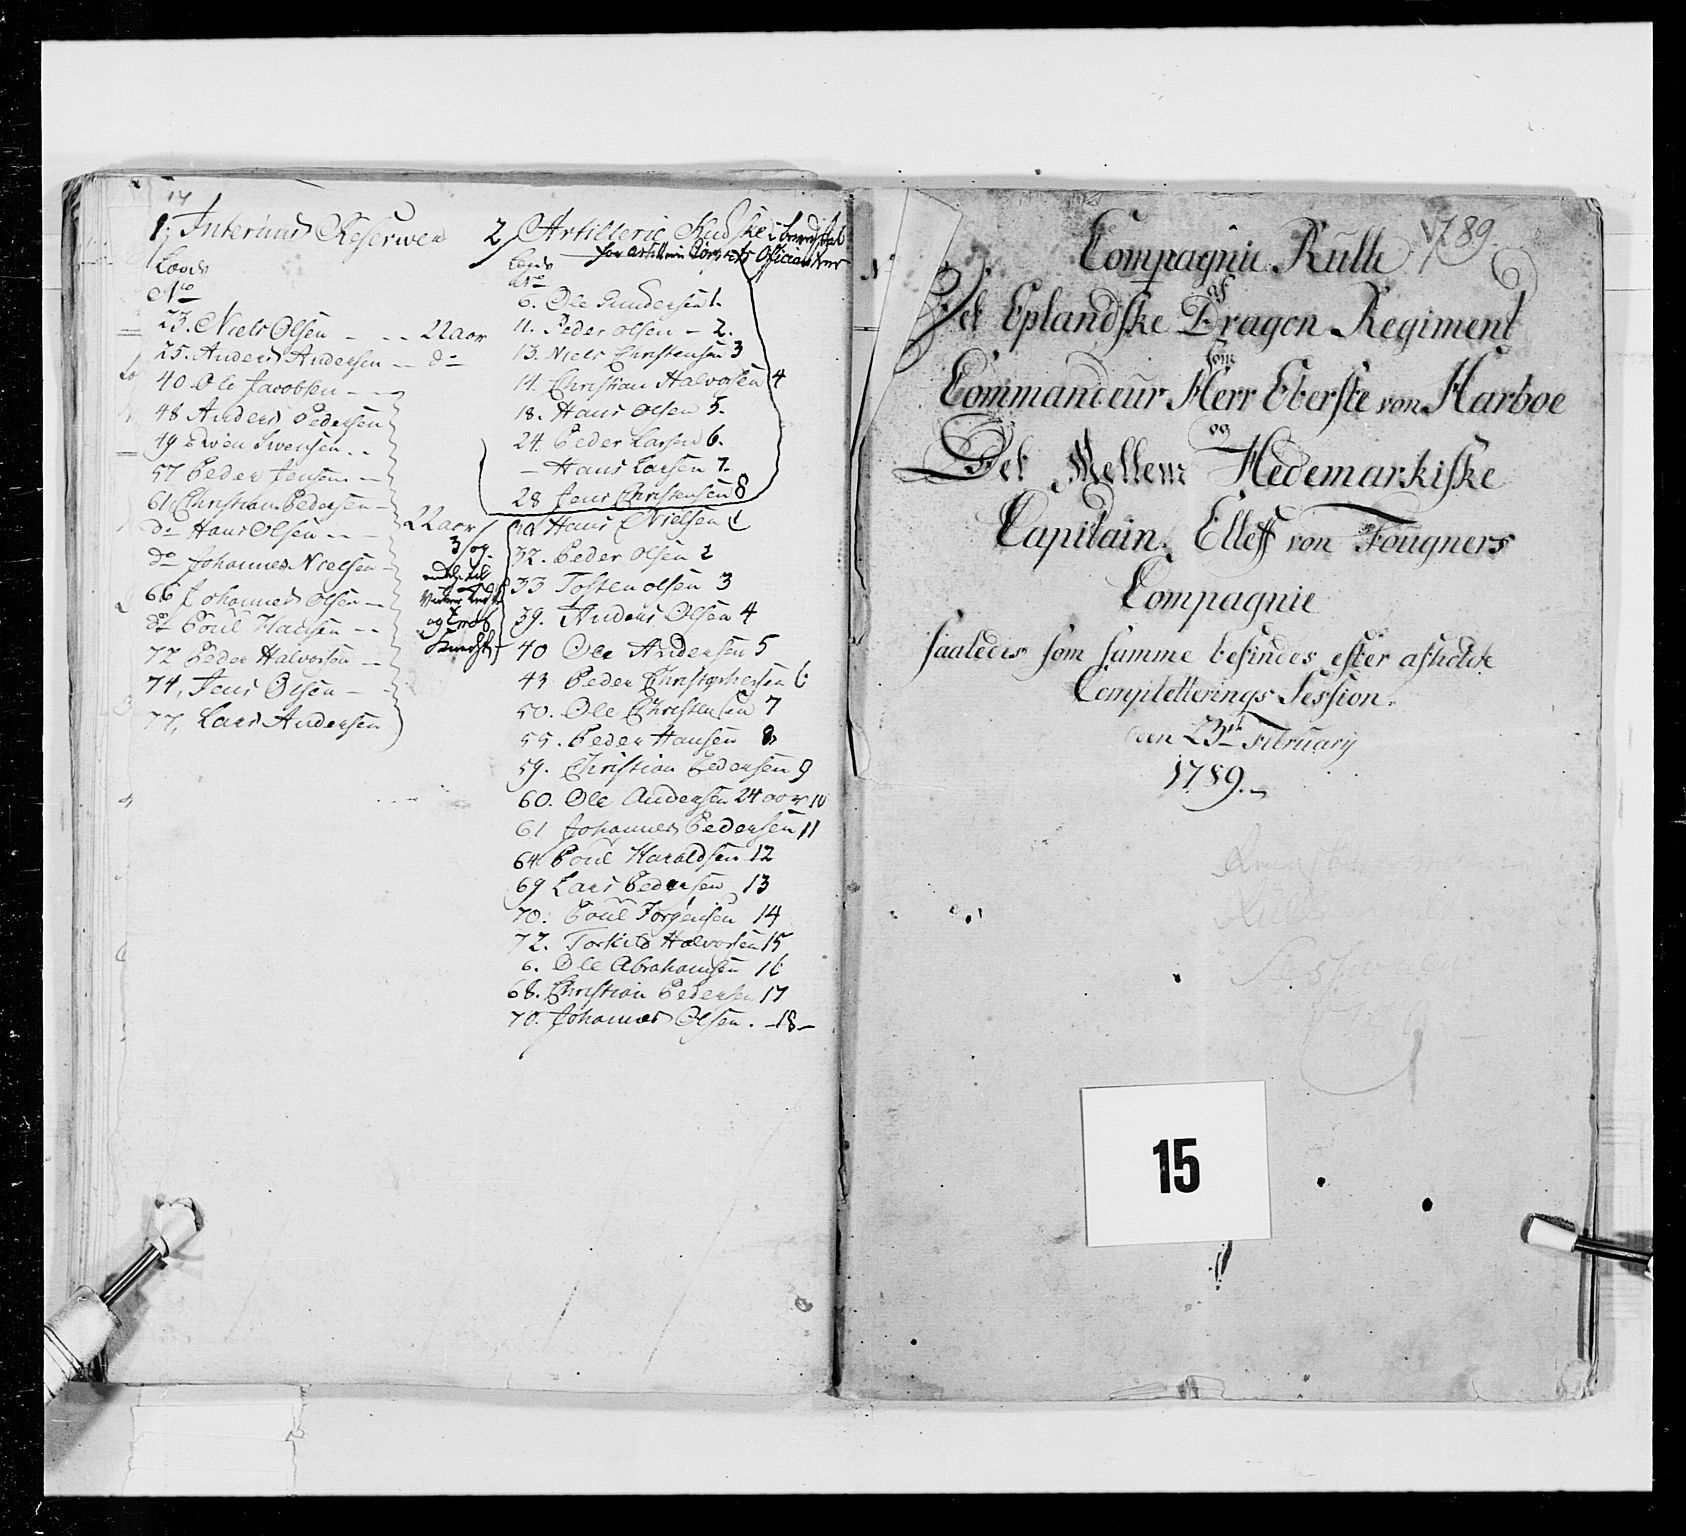 1. Interims Reserver
Lands
No
23. Niels Olsen - - - 22 aar
25. Anders Andersen - - do
40. Ole Jacobsen - - -
48 Anders Pedersen
49 Swen Swensen - -
57 Peder Jensen - -
61 Christian Pedersen -
do Hans Olsen - -
do Johannes Nielsen -
66 Johannes Olsen -
do Poul Hansen - -
72 Peder Halvorsen -
74, Jens Olsen - -
77, Lars Andersen
22 aar
3/ og
og
Knegte
2/ Artillerie Kudske
for Artillerie Corpsets Officianter
Lands
No
6. Ole Gundersen 1.
11. Peder Olsen - 2.
13. Niels Christensen 3
14. Christian Halvorsen 4
18. Hans Olsen 5.
24. Peder Larsen 6.
- Hans Larsen 7.
28 Jens Christensen 8
Hans Nielsen 1
32. Peder Olsen 2
33 Tosten Olsen 3
39. Anders Olsen 4
40 Ole Andersen 5
43 Peder Christophersen 6
50. Ole Christensen 7
55. Peder Hansen 8.
59. Christian Pedersen 9
60. Ole Andersen 24 aar 10
61 Johannes Pedersen 11
64 Poul Haraldsen 12
69 Lars Pedersen 13
70. Poul Jörgensen 14
72. Torkild Halvorsen 15
6. Ole Abrahamsen 16
68. Christian Pedersen 17
70. Johannes Olsen. -18-
1789.
Compagnie Rulle
af
Det Oplandske Dragon Regiment
som
Commandeur Herr Oberste von Harboe
og
Det Mellem Hedemarkiske
Capitain Elleff von Fougners
Compagnie
saaledes som samme befindes efter afholdte
Completterings Session.
den 23de February
1789.
15